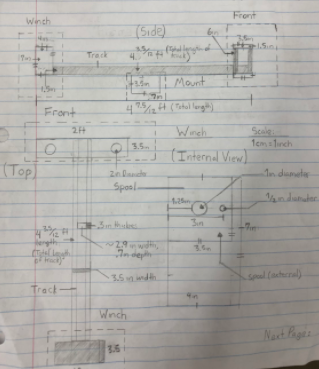 Winch
(Side)
Front
4in
6in
3.5in
1.5in
7in
Track
4 3.5/12 ft (Total length of track)
1.5in
3.5in
Mount
4 7.5/12 ft (Total length)
Front
2ft
3.5in
(Top)
Winch
(Internal View)
Scale
1cm = 1inch
Spool
1in diameter
1/2 in diameter
3in
7in
3.5in
spool (external)
4in
4 3.5/12 ft length
(Total length of track)
3in thick
~2.9 in width,
.7in depth
3.5 in width
Track
Winch
3.5
Next Page